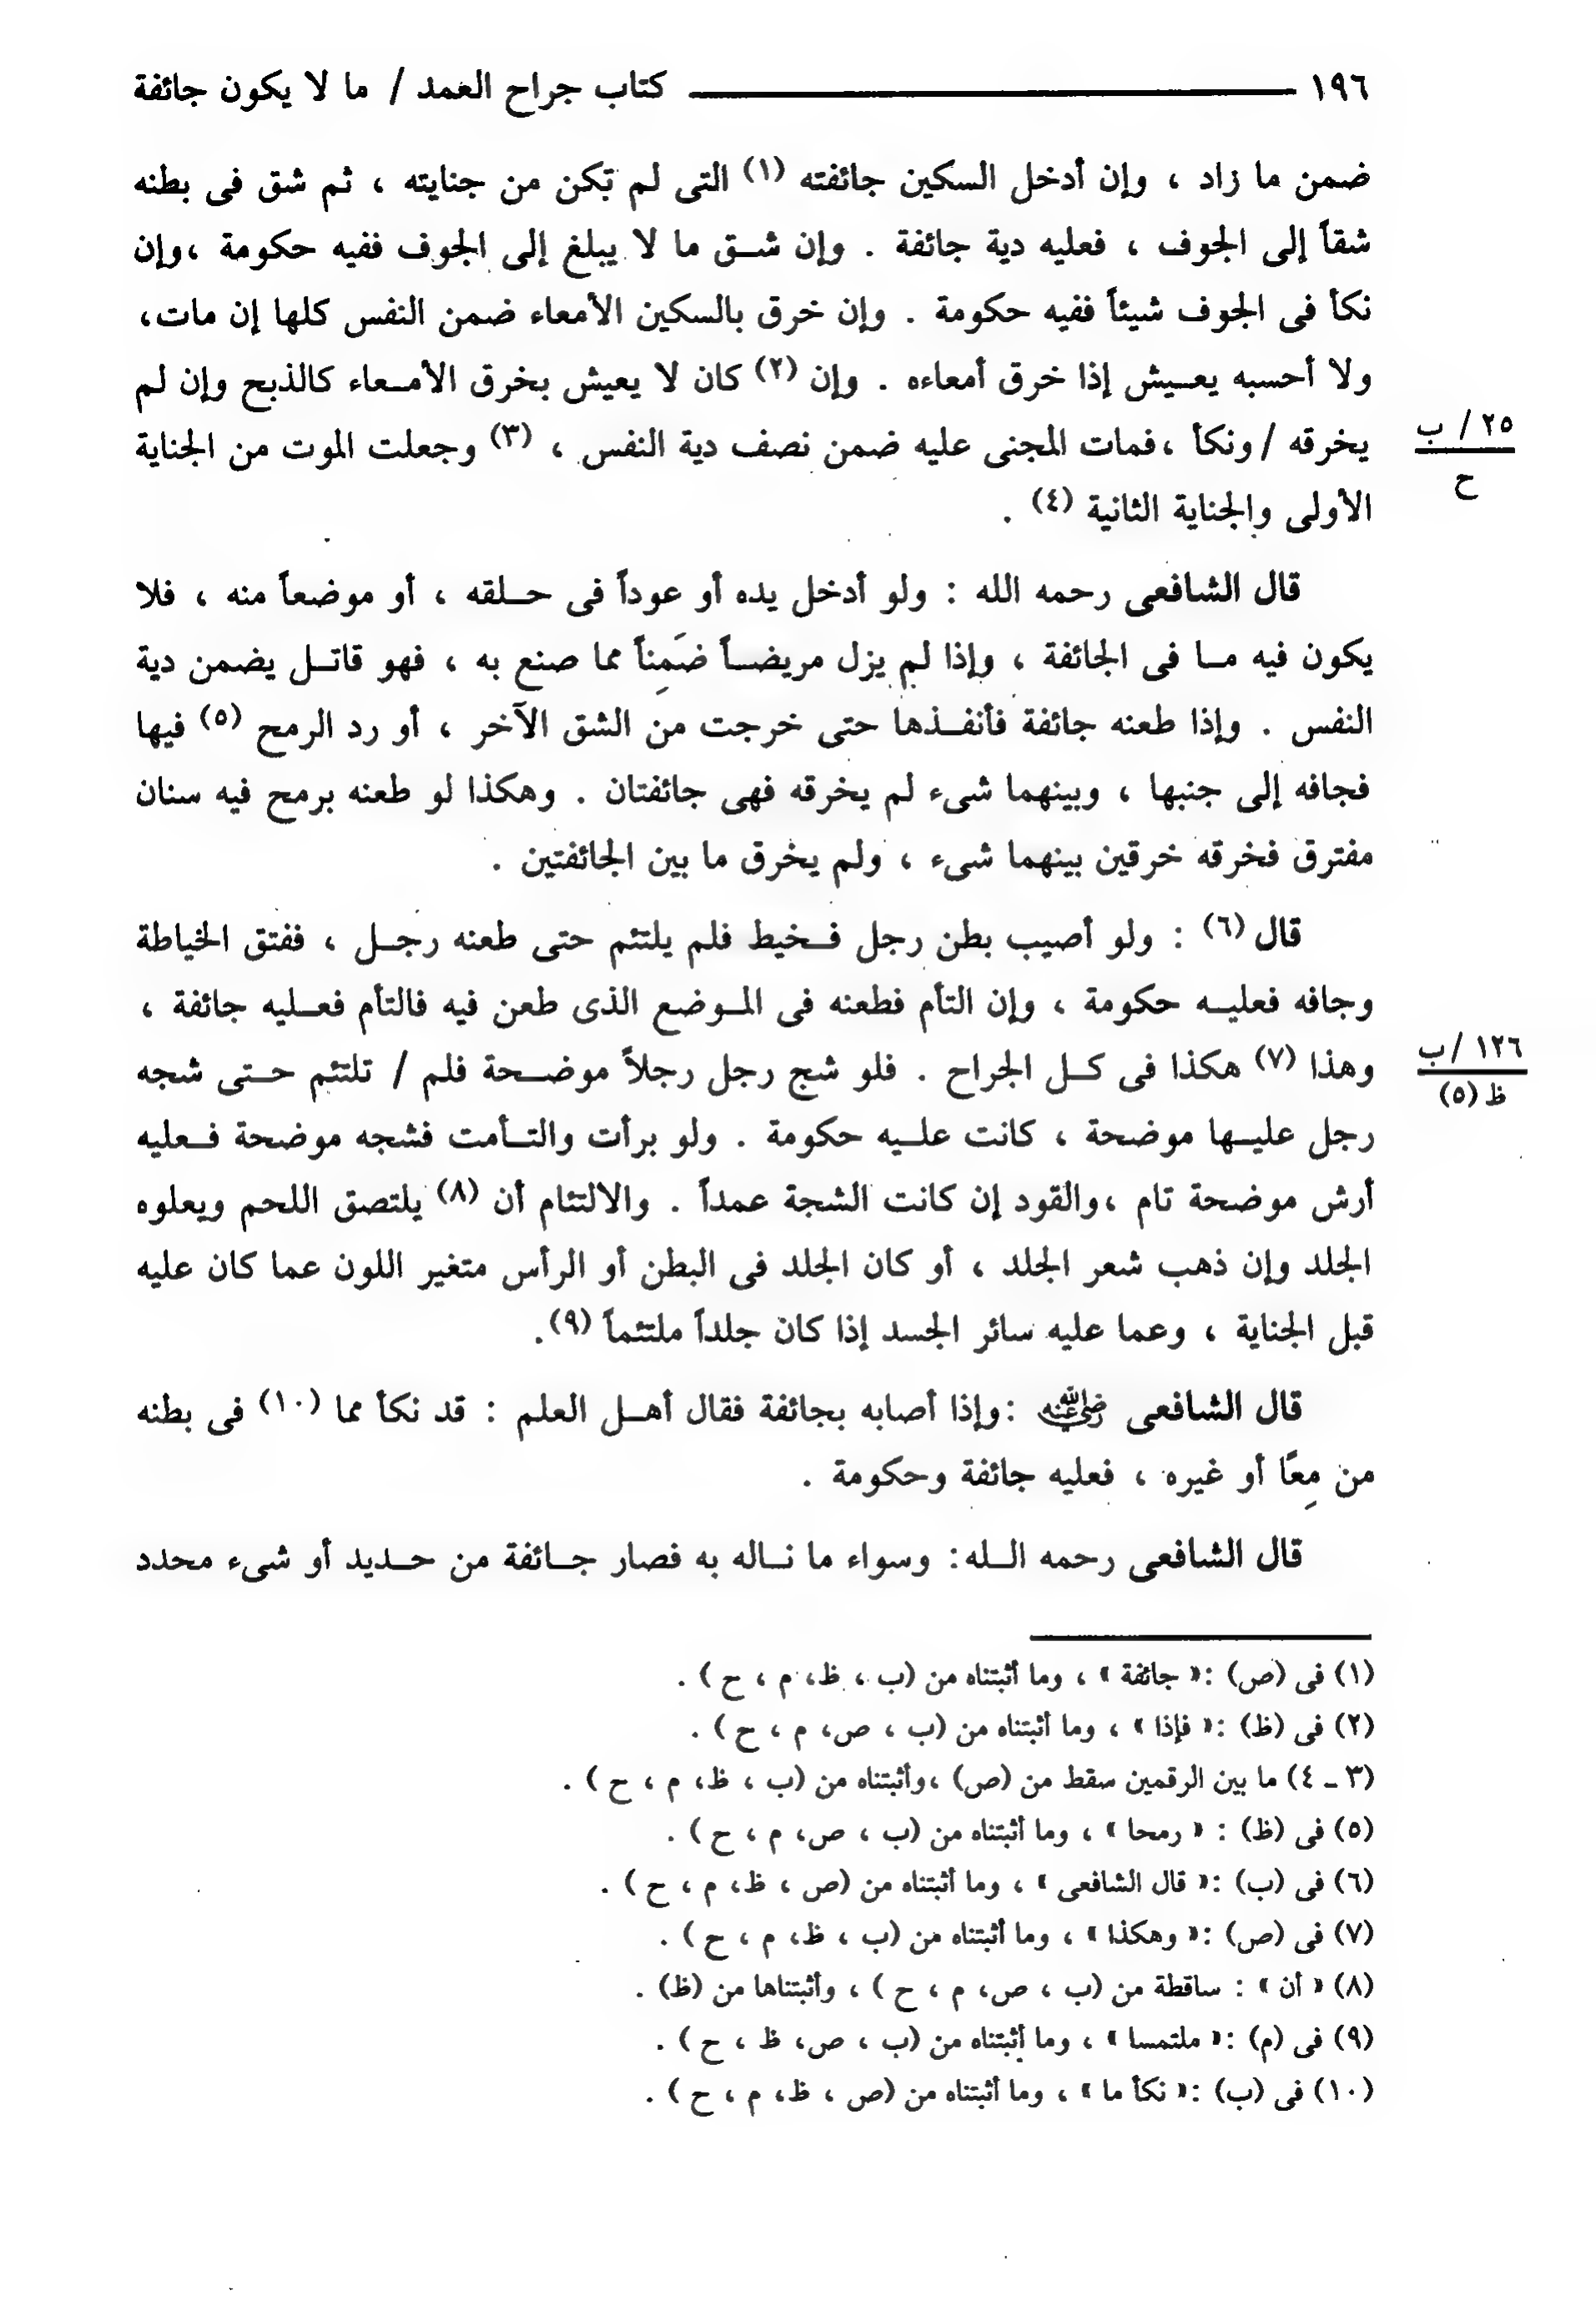 ١٩٦ ــــــــــــــــــــ كتاب جراح العمد / ما لا يكون جائفة
ضمن ما زاد ، وإن أدخل السكين جائفته (١) التى لم تكن من جنايته ، ثم شق فى بطنه
شقاً إلى الجوف ، فعليه دية جائفة . وإن شـق ما لا يبلغ إلى الجوف ففيه حكومة ،وإن
نكأ فى الجوف شيئاً ففيه حكومة . وإن خرق بالسكين الأمعاء ضمن النفس كلها إن مات،
ولا أحسبه يعـيش إذا خرق أمعاءه . وإن (٢) كان لا يعيش بخرق الأمـعاء كالذبح وإن لم
يخرقه /ونكأ ،فمات المجنى عليه ضمن نصف دية النفس ، (٣) وجعلت الموت من الجناية
٢٥ / ب
ح
الأولى والجناية الثانية (٤) .
قال الشافعى رحمه الله : ولو أدخل يده أو عوداً فى حـلقه ، أو موضعاً منه ، فلا
يكون فيه مـا فى الجائفة ، وإذا لم يزل مريضـاً ضَمِناً مما صنع به ، فهو قاتـل يضمن دية
النفس . وإذا طعنه جائفة فأنفـذها حتى خرجت من الشق الآخر ، أو رد الرمح (٥) فيها
فجافه إلى جنبها ، وبينهما شىء لم يخرقه فهى جائفتان . وهكذا لو طعنه برمح فيه سنان
مفترق فخرقه خرقين بينهما شىء ، ولم يخرق ما بين الجائفتين .
قال (٦) : ولو أصيب بطن رجل فـخيط فلم يلتئم حتى طعنه رجـل ، ففتق الخياطة
وجافه فعليـه حكومة ، وإن التأم فطعنه فى المـوضع الذى طعن فيه فالتأم فعـليه جائفة ،
وهذا (٧) هكذا فى كـل الجراح . فلو شج رجل رجلاً موضـحة فلم / تلتئم حـتى شجه
١٢٦ /ب
ظ (٥)
رجل عليـها موضحة ، كانت علـيه حكومة . ولو برأت والتـأمت فشجه موضحة فـعليه
أرش موضحة تام ،والقود إن كانت الشجة عمداً . والالتئام أن (٨) يلتصق اللحم ويعلوه
الجلد وإن ذهب شعر الجلد ، أو كان الجلد فى البطن أو الرأس متغير اللون عما كان عليه
قبل الجناية ، وعما عليه سائر الجسد إذا كان جلداً ملتئماً (٩).
قال الشافعى رضي الله عنه :وإذا أصابه بجائفة فقال أهـل العلم : قد نكأ مما (١٠) فى بطنه
من مِعًا أو غيره ، فعليه جائفة وحكومة .
قال الشافعى رحمه الـله: وسواء ما نـاله به فصار جـائفة من حـديد أو شىء محدد
(١) فى (ص) :« جائفة » ، وما أثبتناه من (ب ، ظ، م ، ح ) .
(٢) فى (ظ) :« فإذا » ، وما أثبتناه من (ب ، ص، م ، ح ) .
(٣ ـ ٤) ما بين الرقمين سقط من (ص) ،وأثبتناه من (ب ، ظ، م ، ح ) .
(٥) فى (ظ) : « رمحا » ، وما أثبتناه من (ب ، ص، م ، ح ) .
(٦) فى (ب) :« قال الشافعى » ، وما أثبتناه من (ص ، ظ، م ، ح ) .
(٧) فى (ص) :« وهكذا » ، وما أثبتناه من (ب ، ظ، م ، ح ) .
(٨) « أن » : ساقطة من (ب ، ص، م ، ح ) ، وأثبتناها من (ظ) .
(٩) فى (م) :« ملتمسا » ، وما أثبتناه من (ب ، ص، ظ ، ح ) .
(١٠) فى (ب) :« نكأ ما » ، وما أثبتناه من (ص ، ظ، م ، ح ) .